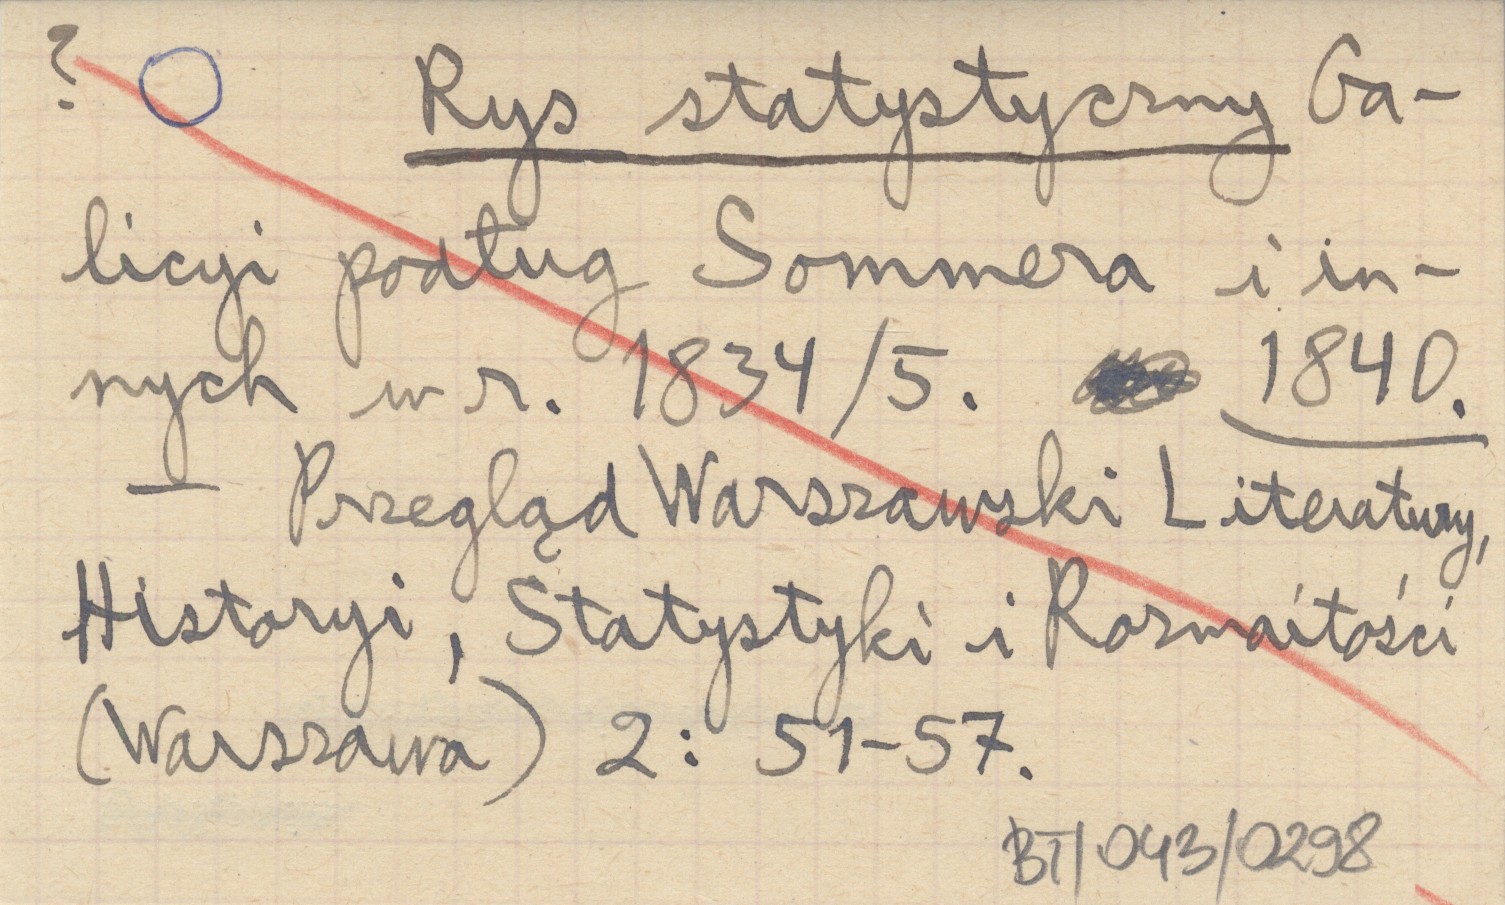 ? Rys statystyczny Ga-
licyi podług Sommera i in-
nych w r. 1834/5. 1840.
— Przegląd Warszawski Literatury,
Historyi, Statystyki i Rozmaitości
(Warszawa) 2: 51-57.
BT/043/0298